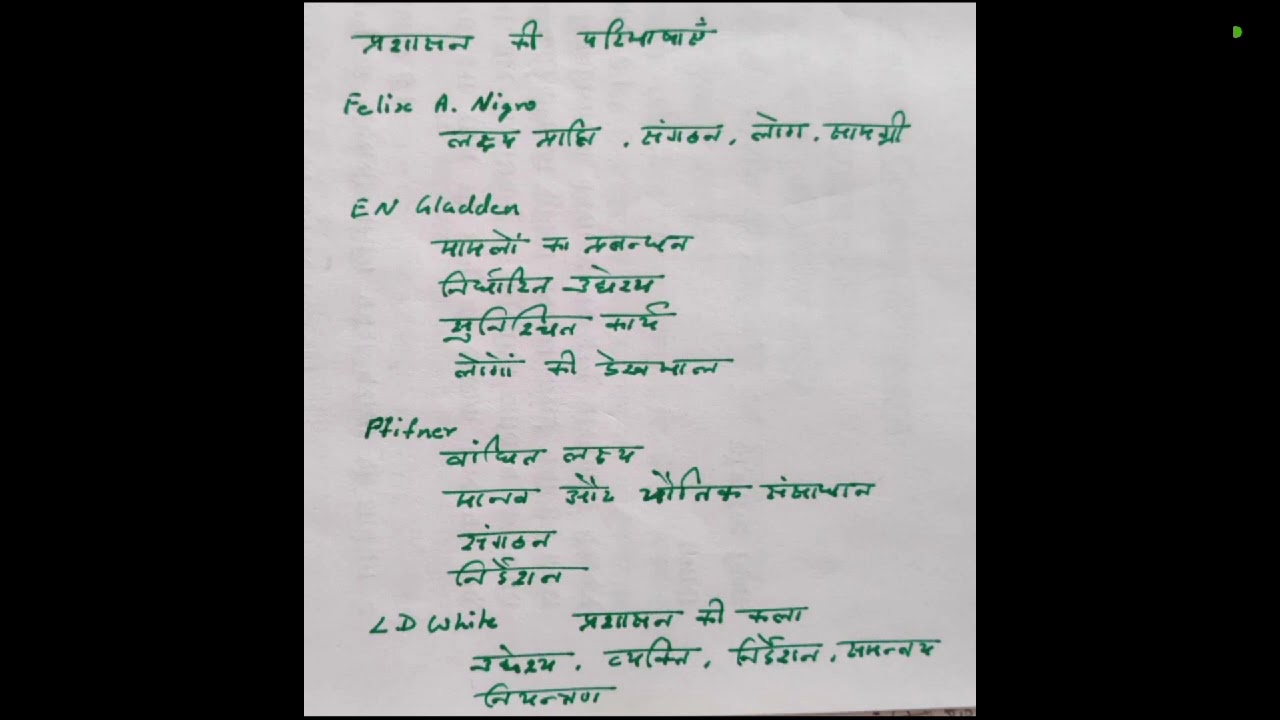 प्रशासन की परिभाषाएँ
Felix A. Nigro
लक्ष्य प्राप्ति, संगठन, लोग, सामग्री
EN Gladden
मामलों का प्रबन्धन
निर्धारित उद्येश्य
सुनिश्चित कार्य
लोगों की देखभाल
Pfifner
वांछित लक्ष्य
मानव और भौतिक संसाधान
संगठन
निर्देशन
LD White प्रशासन की कला
उद्येश्य, व्यक्ति, निर्देशन, समन्वय
नियन्त्रण